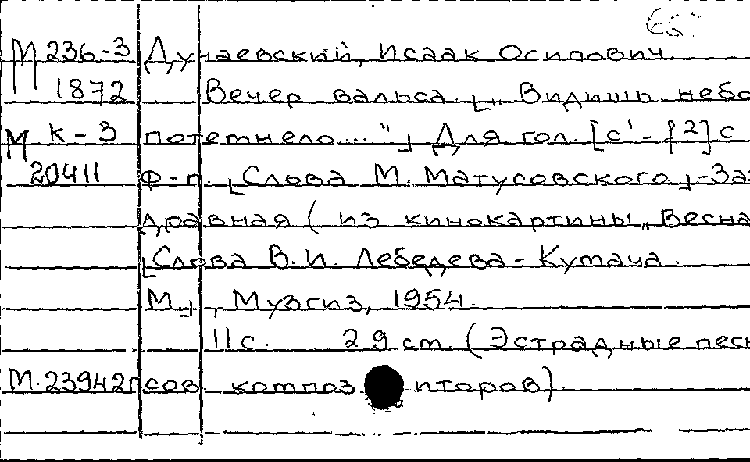 М 236-3 Дунаевский, Исаак Осипович.
1872 Вечер вальса. [„Видишь небо
М К-3 потемнело..."] Для гол. [c¹-f²] с
20411 ф-п. [Слова М. Матусовского]-За
дравная (из кинокартины „Весна
[Слова В.И. Лебедева-Кумача.
М.], Музгиз, 1954.
11 с. 29 см. (Эстрадные песн
М.23942 сов. композиторов).